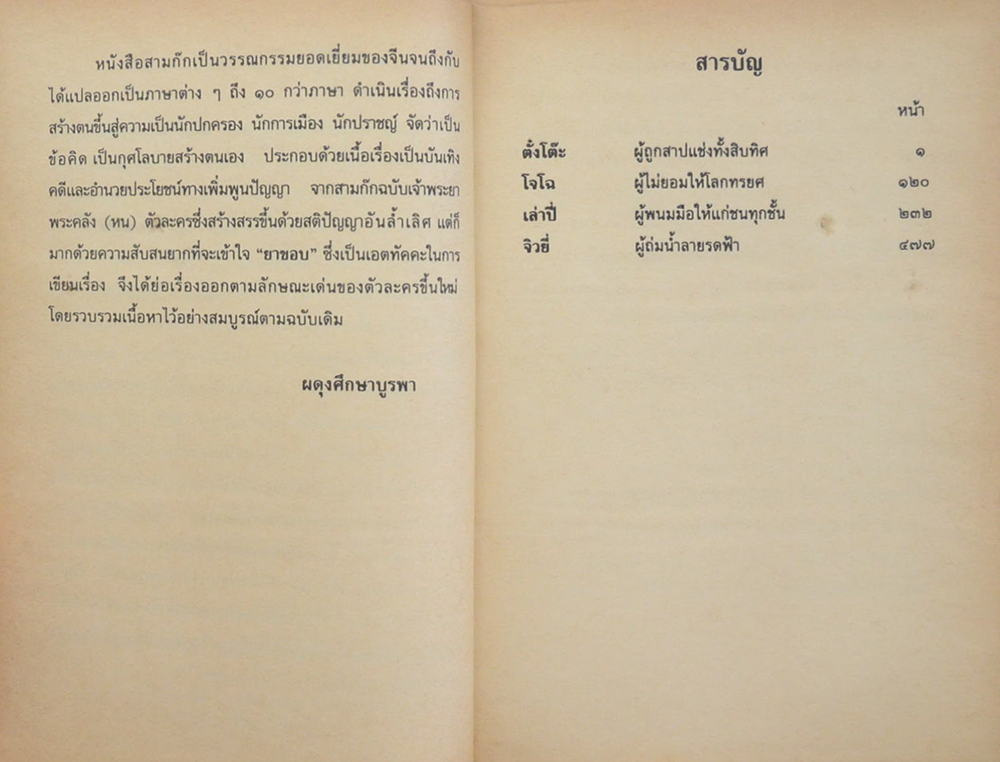 หนังสือสามก๊กเป็นวรรณกรรมยอดเยี่ยมของจีนจนถึงกับ
ได้แปลออกเป็นภาษาต่าง ๆ ถึง ๑๐ กว่าภาษา ดำเนินเรื่องถึงการ
สร้างตนขึ้นสู่ความเป็นนักปกครอง นักการเมือง นักปราชญ์ จัดว่าเป็น
ข้อคิด เป็นกุศโลบายสร้างตนเอง ประกอบด้วยเนื้อเรื่องเป็นบันเทิง
คดีและอำนวยประโยชน์ทางเพิ่มพูนปัญญา จากสามก๊กฉบับเจ้าพระยา
พระคลัง (หน) ตัวละครซึ่งสร้างสรรขึ้นด้วยสติปัญญาอันล้ำเลิศ แต่ก็
มากด้วยความสับสนยากที่จะเข้าใจ “ยาขอบ” ซึ่งเป็นเอตทัคคะในการ
เขียนเรื่อง จึงได้ย่อเรื่องออกตามลักษณะเด่นของตัวละครขึ้นใหม่
โดยรวบรวมเนื้อหาไว้อย่างสมบูรณ์ตามฉบับเดิม
ผดุงศึกษาบูรพา
สารบัญ
หน้า
ตั๋งโต๊ะ ผู้ถูกสาปแช่งทั้งสิบทิศ ๑
โจโฉ ผู้ไม่ยอมให้โลกทรยศ ๑๒๐
เล่าปี่ ผู้พนมมือให้แก่ชนทุกชั้น ๒๓๒
จิวยี่ ผู้ถ่มน้ำลายรดฟ้า ๔๗๗